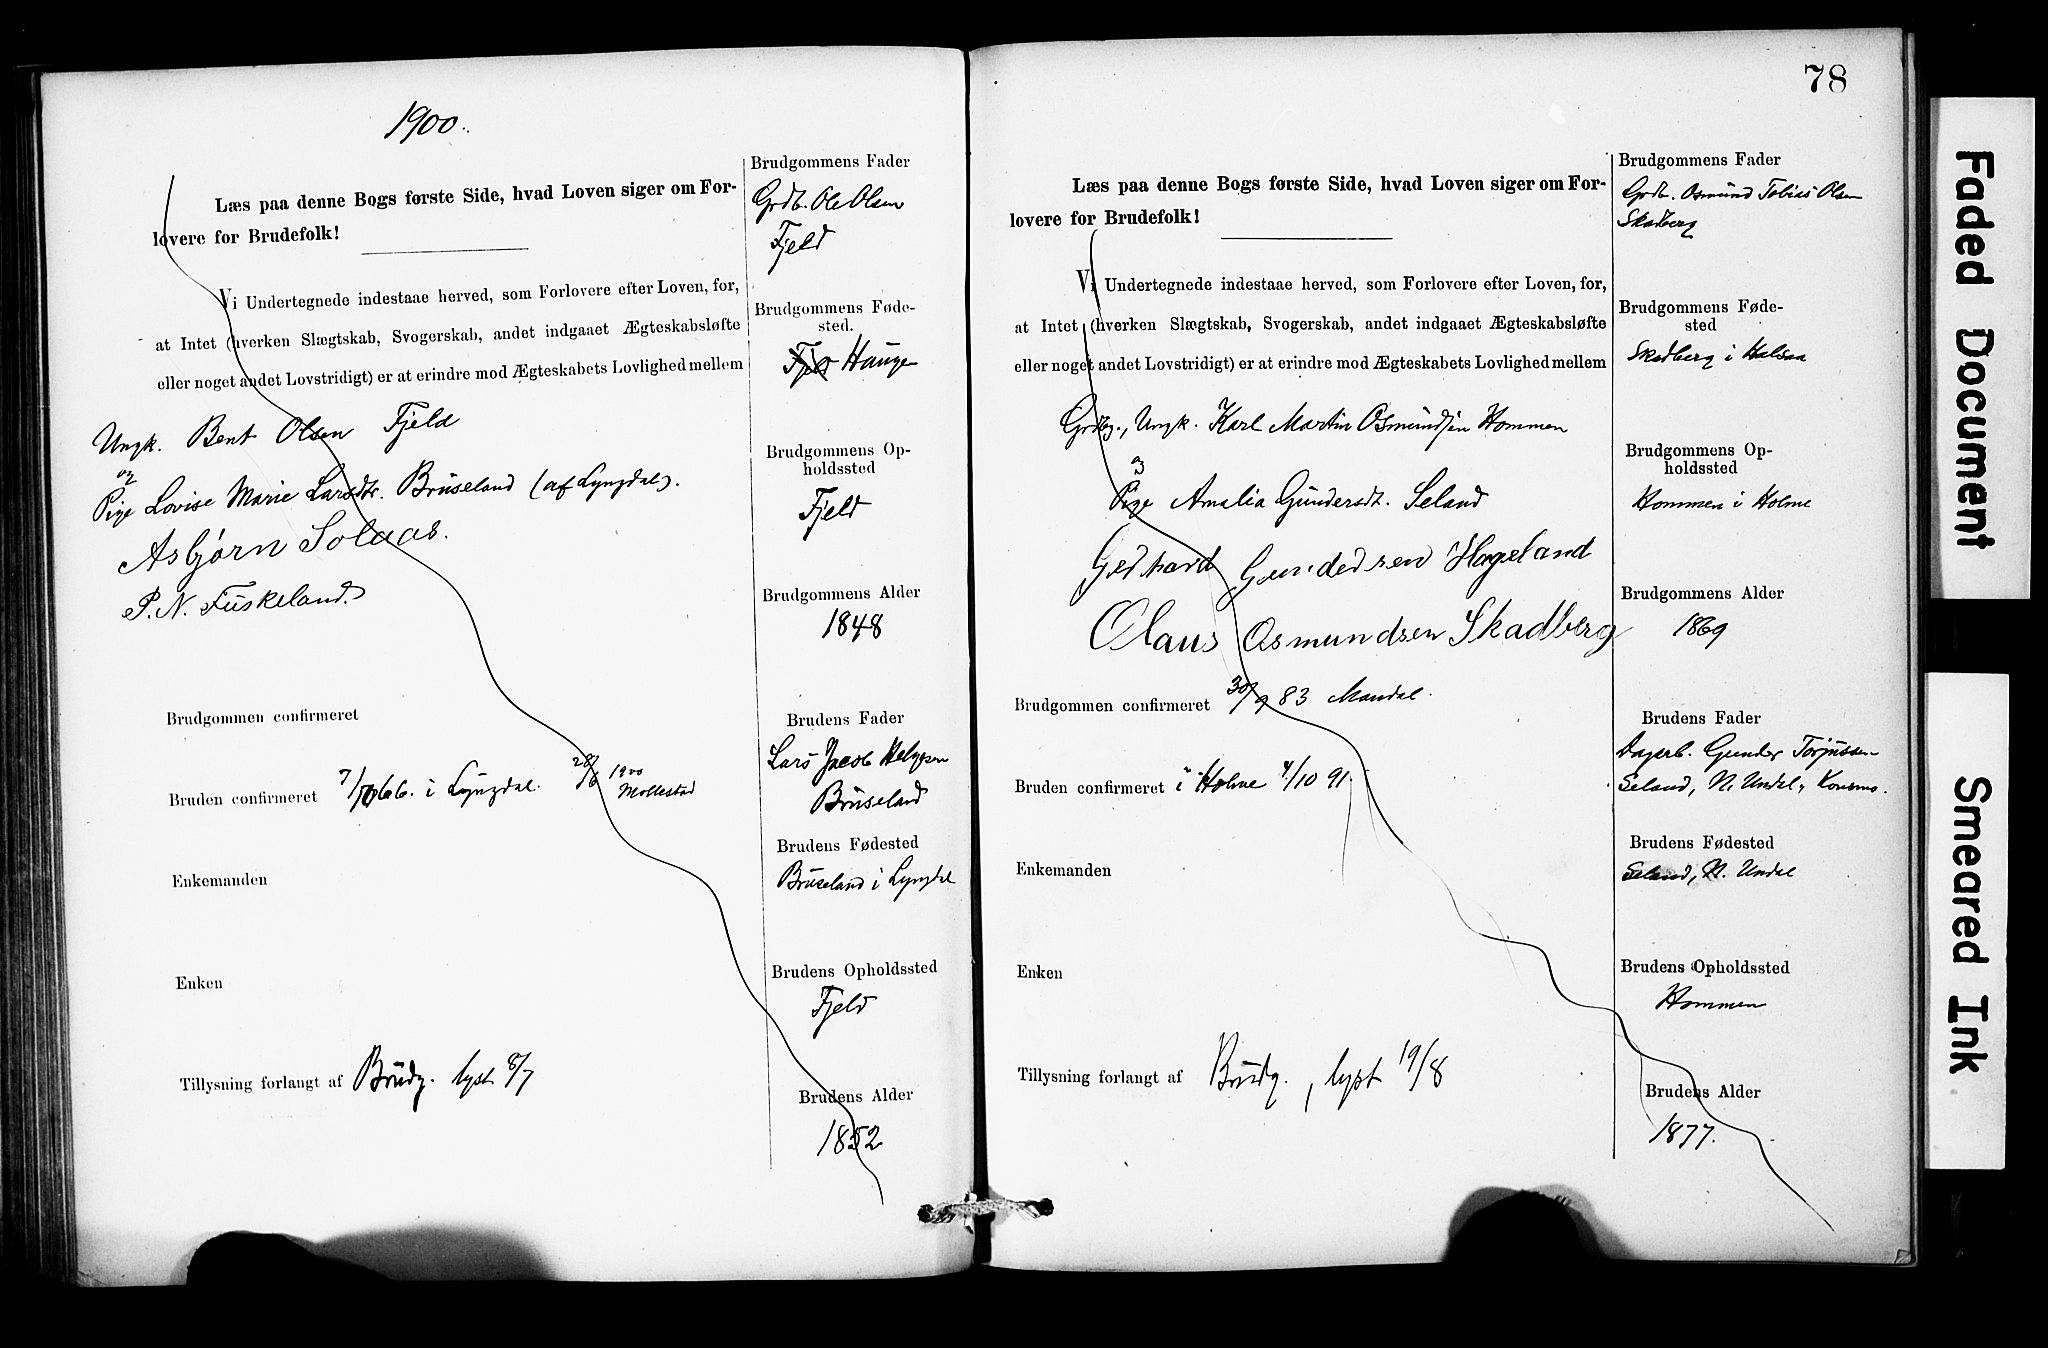 1900.
Læs paa denne Bogs første Side, hvad Loven siger om For-
lovere for Brudefolk!
Vi Undertegnede indestaae herved, som Forlovere efter Loven, for,
at Intet (hverken Slægtskab, Svogerskab, andet indgaaet Ægteskabsløfte
eller noget andet Lovstridigt) er at erindre mod Ægteskabets Lovlighed mellem
Ungk. Bent Olsen Fjeld
og
Pige Lovise Marie Larsdtr. Bruseland (af Lyngdal).
Asbjørn Solaas.
P. N. Fuskeland.
Brudgommen confirmeret
Bruden confirmeret 7/10 66. i Lyngdal. 28/6 1900
Mollestad
Enkemanden
Enken
Tillysning forlangt af Brudg. lyst 8/7
Brudgommens Fader
Grdb. Ole Olsen
Fjeld
Brudgommens Føde-
sted.
Hauge
Brudgommens Op-
holdssted
Fjeld
Brudgommens Alder
1848
Brudens Fader
Lars Jacob Helgesen
Bruseland
Brudens Fødested
Bruseland i Lyngdal
Brudens Opholdssted
Fjeld
Brudens Alder
1852
78
Læs paa denne Bogs første Side, hvad Loven siger om For-
lovere for Brudefolk!
Vi Undertegnede indestaae herved, som Forlovere efter Loven, for,
at Intet (hverken Slægtskab, Svogerskab, andet indgaaet Ægteskabsløfte
eller noget andet Lovstridigt) er at erindre mod Ægteskabets Lovlighed mellem
Grdbg., Ungk. Karl Martin Osmundsen Hommen
og
Pige Amalia Gundersdt. Seland
Gerhard Gundersen Høgeland
Olaus Osmundsen Skadberg
Brudgommen confirmeret 30/9 83 Mandal.
Bruden confirmeret i Holme 4/10 91
Enkemanden
Enken
Tillysning forlangt af Brudg., lyst 19/8
Brudgommens Fader
Grdb. Osmund Tobias Olsen
Skadberg
Brudgommens Føde-
sted
Skadberg i Halsaa
Brudgommens Op-
holdssted
Hommen i Holme
Brudgommens Alder
1869
Brudens Fader
Dagarb. Gunder Torjussen
Seland, N. Undal, Konsmo.
Brudens Fødested
Seland, N. Undal
Brudens Opholdssted
Hommen
Brudens Alder
1877.
Faded Document
Smeared Ink